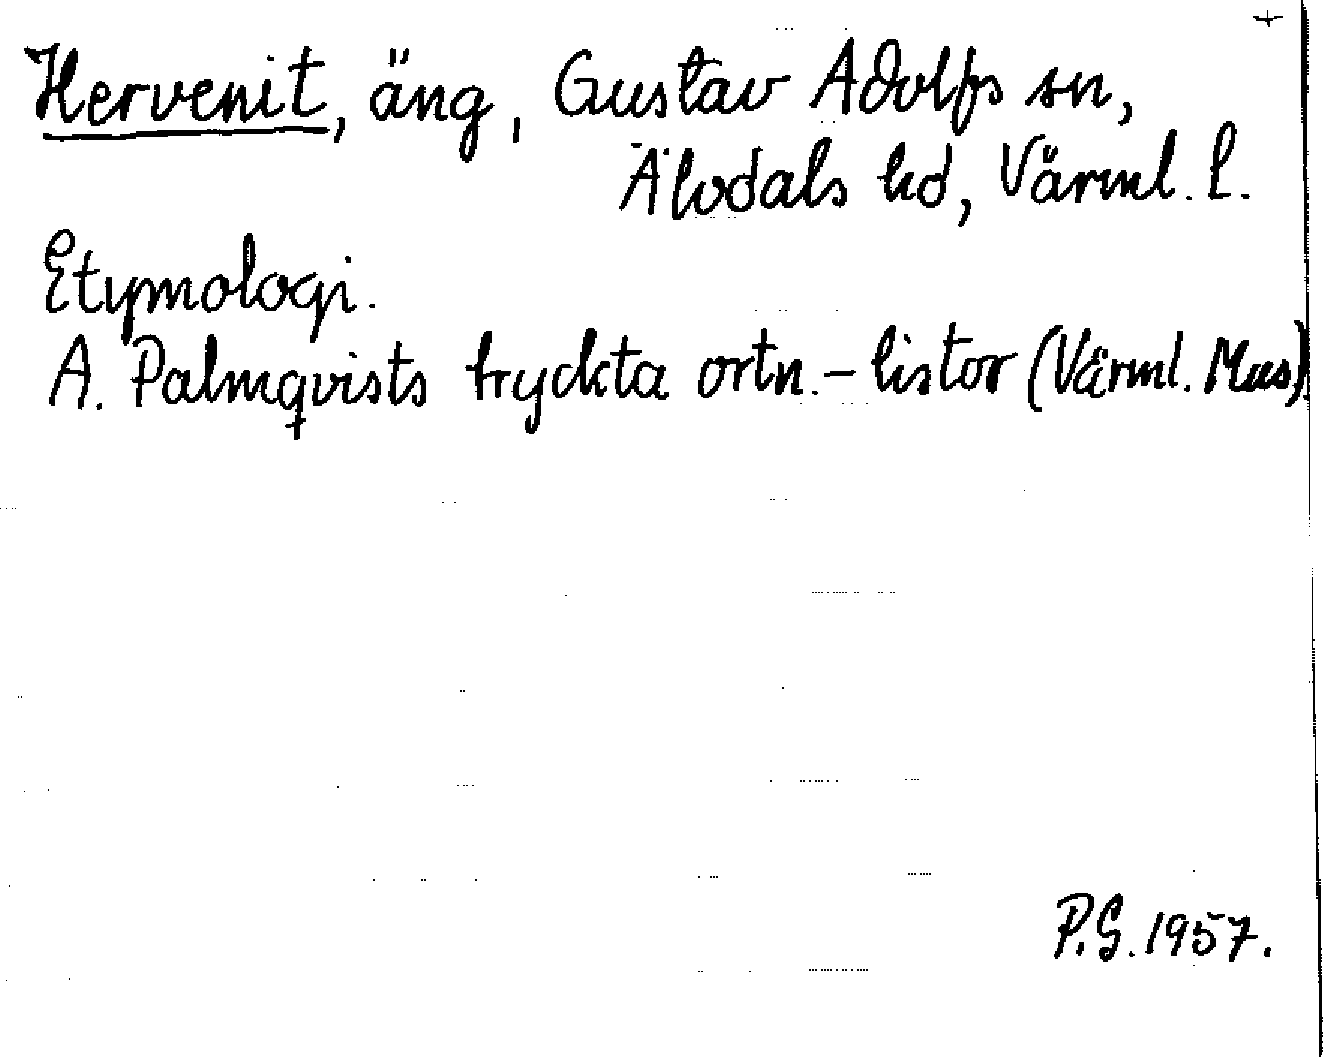 +
Hervenit, äng, Gustav Adolfs sn,
Älvdals hd, Värml. l.
Etymologi.
A. Palmqvists tryckta ortn.-listor (Värml. Mus)
P.G. 1957.